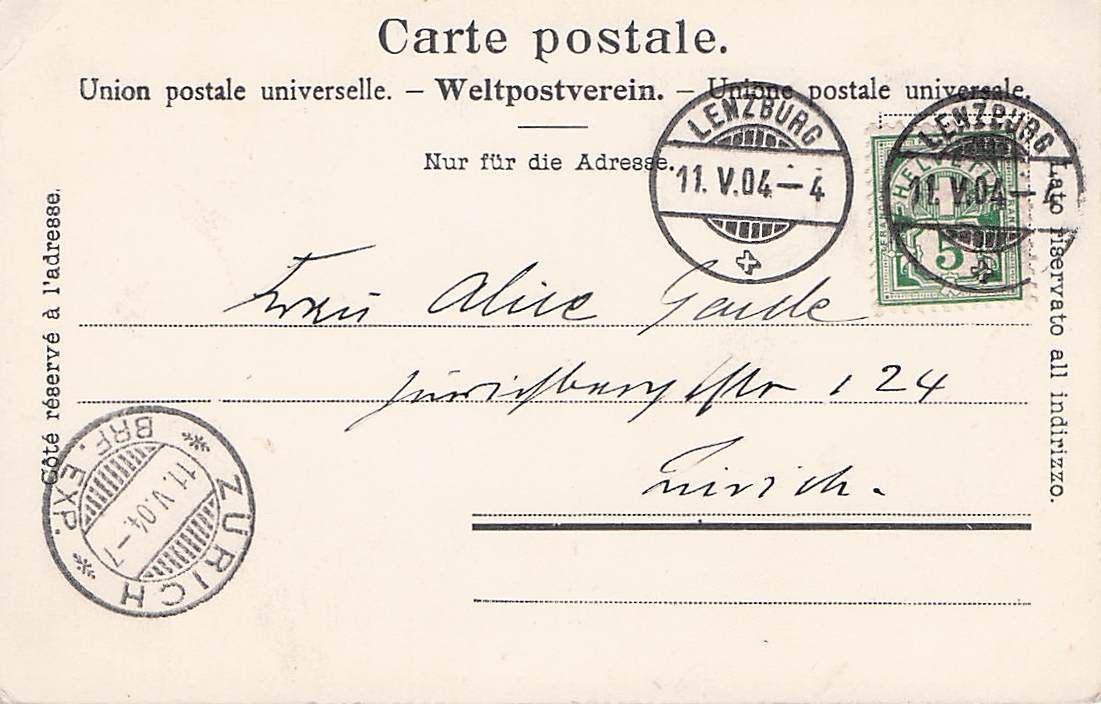 Carte postale.
Union postale universelle. – Weltpostverein. – Unione postale universale.
Nur für die Adresse.
Côté réservé à l'adresse.
Lato riservato all indirizzo.
LENZBURG
11. V. 04 – 4
LENZBURG
11. V. 04 – 4
HELVETIA
5
Frau Alice
124
Zürich.
ZÜRICH
11. V. 04. – 7
BRF. EXP.